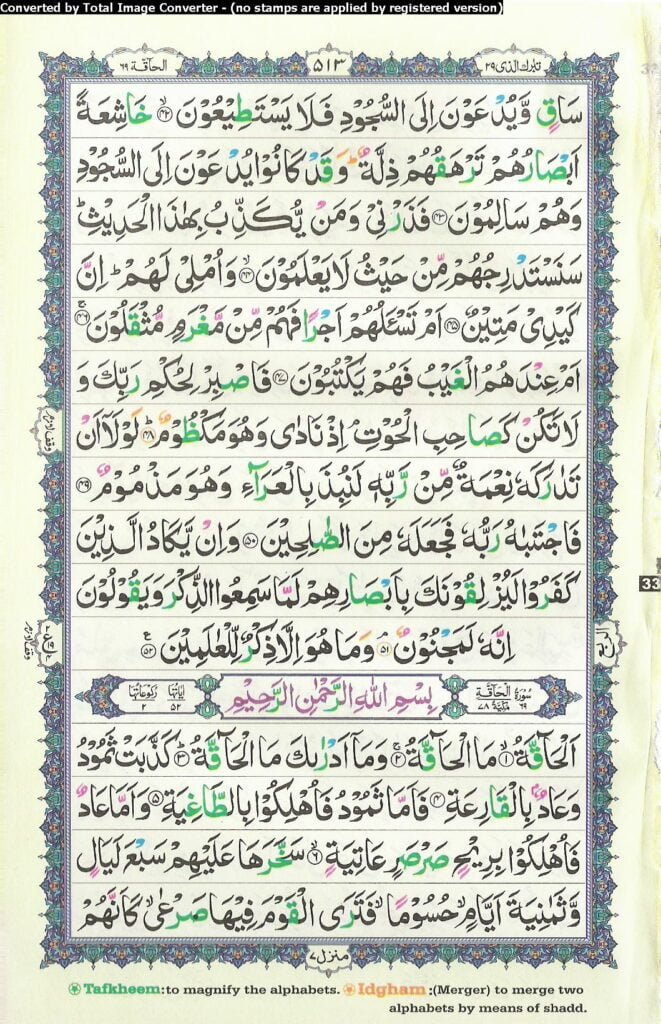 Converted by Total Image Converter - (no stamps are applied by registered version)
تبٰرك الذی ۲۹ ۵۱۳ الحآقة ۶۹
سَاقٍ وَّيُدْعَوْنَ اِلَى السُّجُوْدِ فَلَا يَسْتَطِيْعُوْنَ ۙ‏﴿۴۲﴾ خَاشِعَةً
اَبْصَارُهُمْ تَرْهَقُهُمْ ذِلَّةٌ ؕ وَقَدْ كَانُوْا يُدْعَوْنَ اِلَى السُّجُوْدِ
وَهُمْ سَالِمُوْنَ ﴿۴۳﴾ فَذَرْنِيْ وَمَنْ يُّكَذِّبُ بِهٰذَا الْحَدِيْثِ ؕ
سَنَسْتَدْرِجُهُمْ مِّنْ حَيْثُ لَا يَعْلَمُوْنَ ۙ﴿۴۴﴾ وَاُمْلِيْ لَهُمْ ؕ اِنَّ
كَيْدِيْ مَتِيْنٌ ﴿۴۵﴾ اَمْ تَسْـَٔلُهُمْ اَجْرًا فَهُمْ مِّنْ مَّغْرَمٍ مُّثْقَلُوْنَ ۚ﴿۴۶﴾
اَمْ عِنْدَهُمُ الْغَيْبُ فَهُمْ يَكْتُبُوْنَ ﴿۴۷﴾ فَاصْبِرْ لِحُكْمِ رَبِّكَ وَ
لَا تَكُنْ كَصَاحِبِ الْحُوْتِ ۘ اِذْ نَادٰى وَهُوَ مَكْظُوْمٌ ؕ﴿۴۸﴾ لَوْلَاۤ اَنْ
تَدٰرَكَهٗ نِعْمَةٌ مِّنْ رَّبِّهٖ لَنُبِذَ بِالْعَرَآءِ وَهُوَ مَذْمُوْمٌ ﴿۴۹﴾
فَاجْتَبٰىهُ رَبُّهٗ فَجَعَلَهٗ مِنَ الصّٰلِحِيْنَ ﴿۵۰﴾ وَاِنْ يَّكَادُ الَّذِيْنَ
كَفَرُوْا لَيُزْلِقُوْنَكَ بِاَبْصَارِهِمْ لَمَّا سَمِعُوا الذِّكْرَ وَيَقُوْلُوْنَ
اِنَّهٗ لَمَجْنُوْنٌ ۘ﴿۵۱﴾ وَمَا هُوَ اِلَّا ذِكْرٌ لِّلْعٰلَمِيْنَ ﴿۵۲﴾
سُوْرَةُ الْحَآقَّةِ مَكِّيَّةٌ ۶۹ ۷۸ بِسْمِ اللّٰهِ الرَّحْمٰنِ الرَّحِيْمِ اٰيَاتُهَا ۵۲ رُكُوْعَاتُهَا ۲
اَلْحَآقَّةُ ۙ﴿۱﴾ مَا الْحَآقَّةُ ۚ﴿۲﴾ وَمَاۤ اَدْرٰىكَ مَا الْحَآقَّةُ ؕ﴿۳﴾ كَذَّبَتْ ثَمُوْدُ
وَعَادٌۢ بِالْقَارِعَةِ ﴿۴﴾ فَاَمَّا ثَمُوْدُ فَاُهْلِكُوْا بِالطَّاغِيَةِ ﴿۵﴾ وَاَمَّا عَادٌ
فَاُهْلِكُوْا بِرِيْحٍ صَرْصَرٍ عَاتِيَةٍ ۙ﴿۶﴾ سَخَّرَهَا عَلَيْهِمْ سَبْعَ لَيَالٍ
وَّثَمٰنِيَةَ اَيَّامٍ ۙ حُسُوْمًا ۙ فَتَرَى الْقَوْمَ فِيْهَا صَرْعٰى ۙ كَاَنَّهُمْ
منزل ۷
33
Tafkheem:to magnify the alphabets. Idgham :(Merger) to merge two
alphabets by means of shadd.